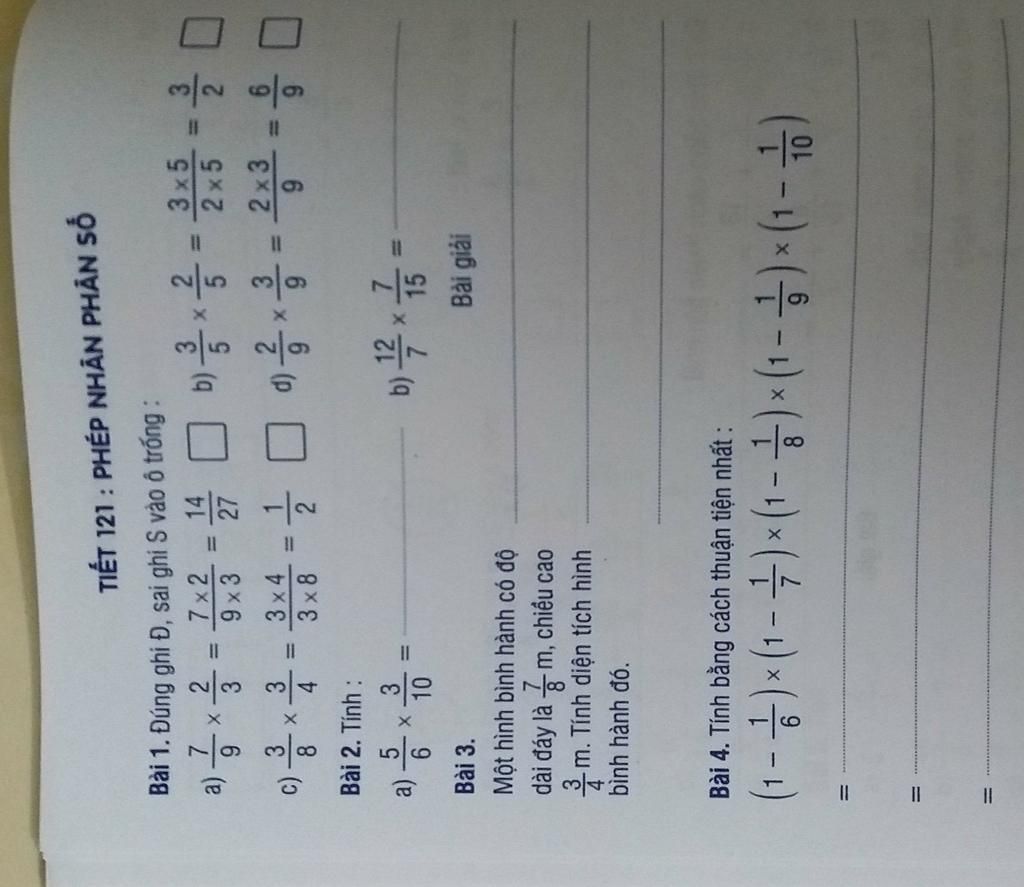 TIẾT 121 : PHÉP NHÂN PHÂN SỐ
Bài 1. Đúng ghi Đ, sai ghi S vào ô trống :
a) 7/9 × 2/3 = (7 × 2)/(9 × 3) = 14/27 □ b) 3/5 × 2/5 = (3 × 5)/(2 × 5) = 3/2 □
c) 3/8 × 3/4 = (3 × 4)/(3 × 8) = 1/2 □ d) 2/9 × 3/9 = (2 × 3)/9 = 6/9 □
Bài 2. Tính :
a) 5/6 × 3/10 = b) 12/7 × 7/15 =
Bài 3.
Bài giải
Một hình bình hành có độ
dài đáy là 7/8 m, chiều cao
3/4 m. Tính diện tích hình
bình hành đó.
Bài 4. Tính bằng cách thuận tiện nhất :
(1 − 1/6) × (1 − 1/7) × (1 − 1/8) × (1 − 1/9) × (1 − 1/10)
=
=
=